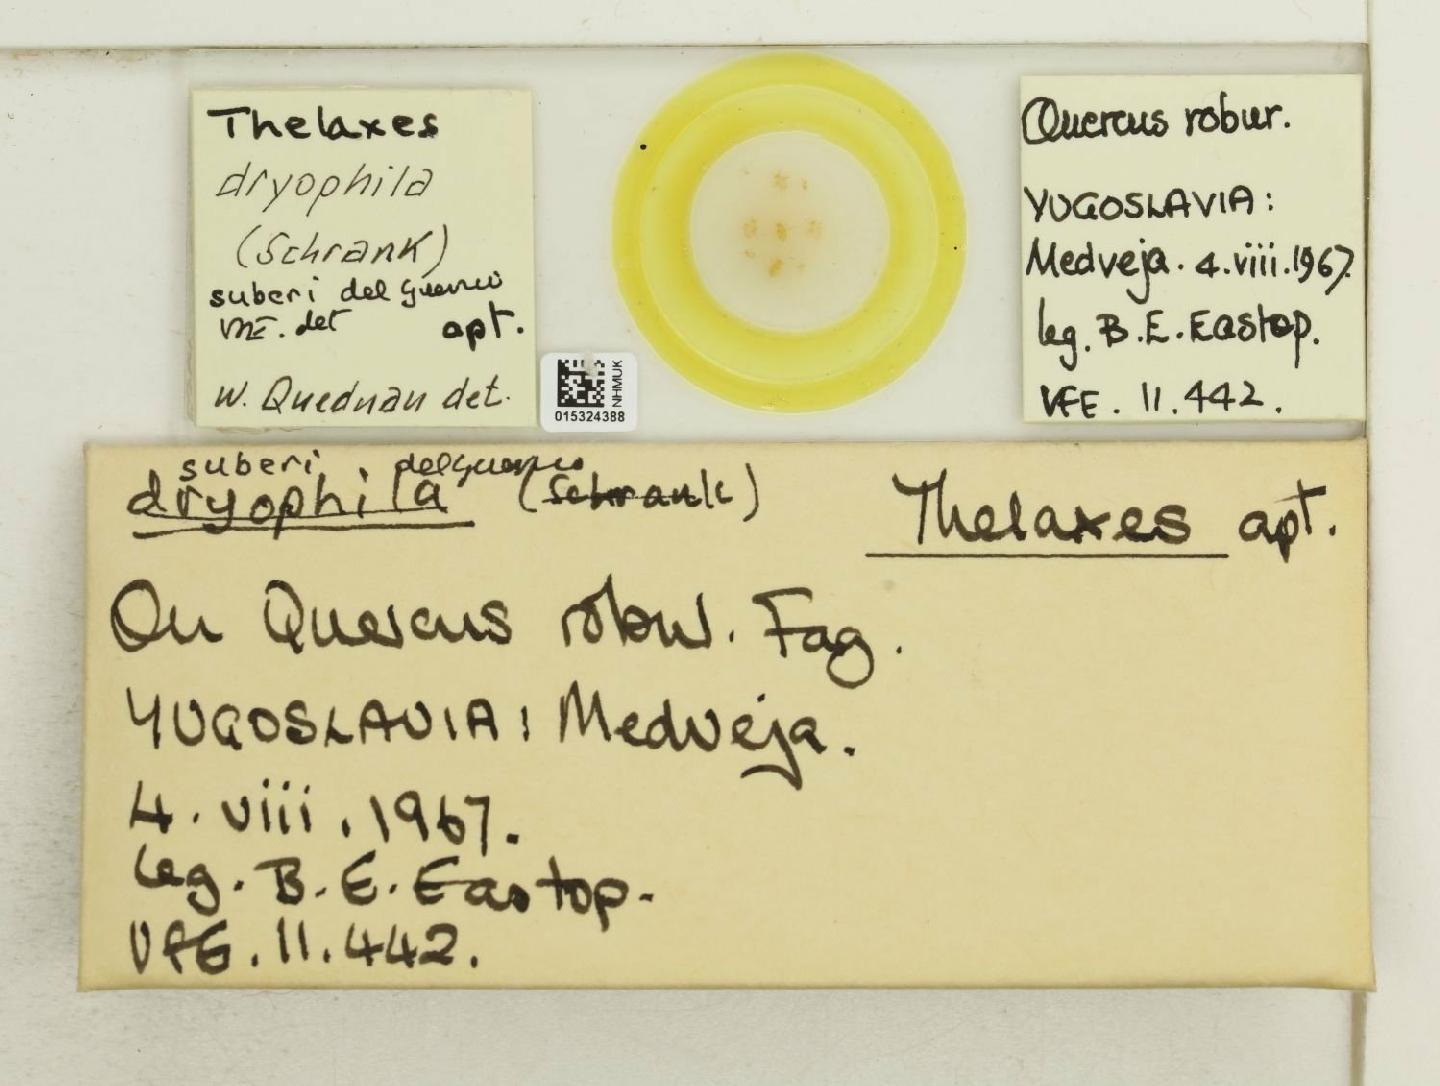 Thelaxes
dryophila
(Schrank)
suberi del Guercio
det apt.
W. Quednau det.
NHMUK
015324388
Quercus robur.
YUGOSLAVIA:
Medveja. 4.viii.1967.
leg. B.E. Eastop.
11.442.
suberi del Guercio
dryophila (Schrank) Thelaxes apt.
On Quercus robur. Fag.
YUGOSLAVIA: Medveja.
4.viii.1967.
leg. B.E. Eastop.
11.442.